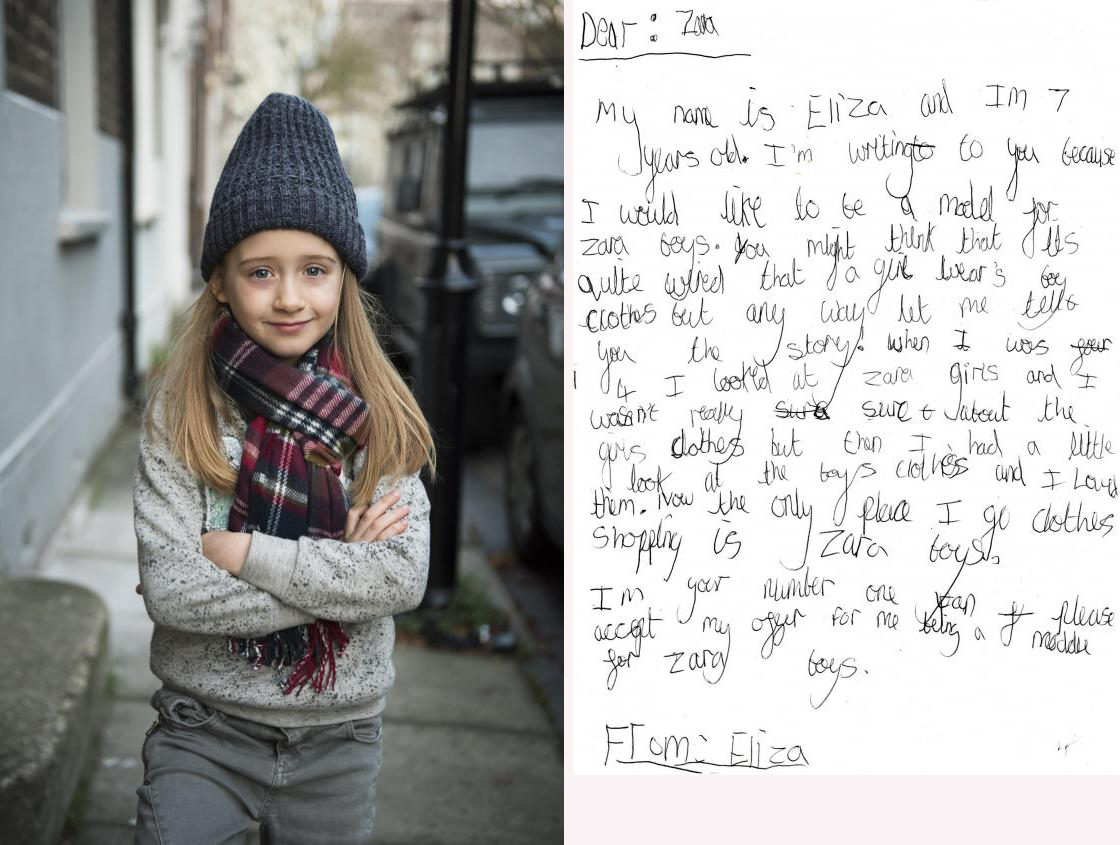 Dear : Zara
My name is Eliza and IM 7
years old. I'm writing to you because
I would like to be a model for
zara boys. you might think that it's
quite wired that a girl wear's boy
clothes but any way let me tell
you the story. when I was
4 I looked at zara girls and I
wasn't really sure about the
girls clothes but then I had a little
look at the boys clothes and I Loved
them. Now the only place I go clothes
shopping is Zara boys.
I'm your number one fan please
accept my offer for me being a moddle
for zara boys.
From: Eliza